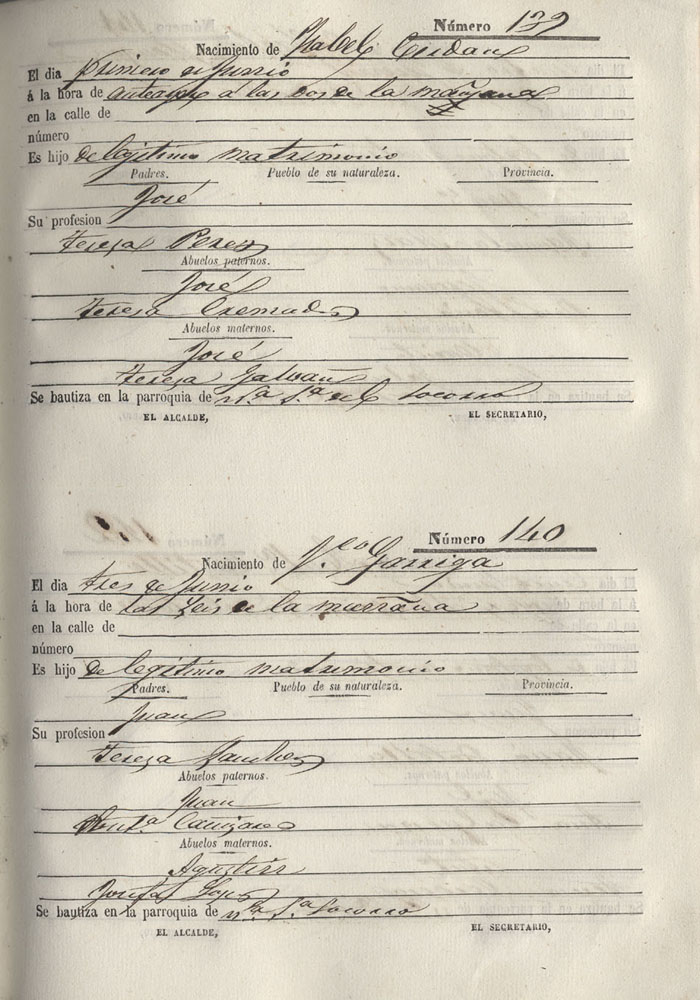 Número 139
Nacimiento de Ysabel Cerdan
El dia primero de Junio
á la hora de antedicho a las dos de la mañana
en la calle de
número
Es hijo de legitimo matrimonio
Padres. Pueblo de su naturaleza. Provincia.
José
Su profesion
Teresa Perez
Abuelos paternos.
José
Teresa Cremades
Abuelos maternos.
José
Teresa Galvañ
Se bautiza en la parroquia de N.ª S.ª del Socorro
EL ALCALDE, EL SECRETARIO,
Número 140
Nacimiento de F.co Garriga
El dia tres de Junio
á la hora de las seis de la mañana
en la calle de
número
Es hijo de legitimo matrimonio
Padres. Pueblo de su naturaleza. Provincia.
Juan
Su profesion
Teresa Sanchez
Abuelos paternos.
Juan
Cañizares
Abuelos maternos.
Agustin
Josefa Lopez
Se bautiza en la parroquia de N.ª S.ª Socorro
EL ALCALDE, EL SECRETARIO,